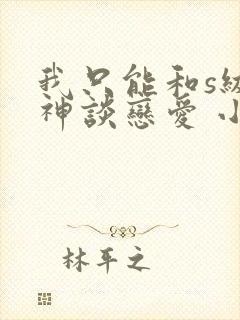 我只能和s級
神談戀愛 小
林平之